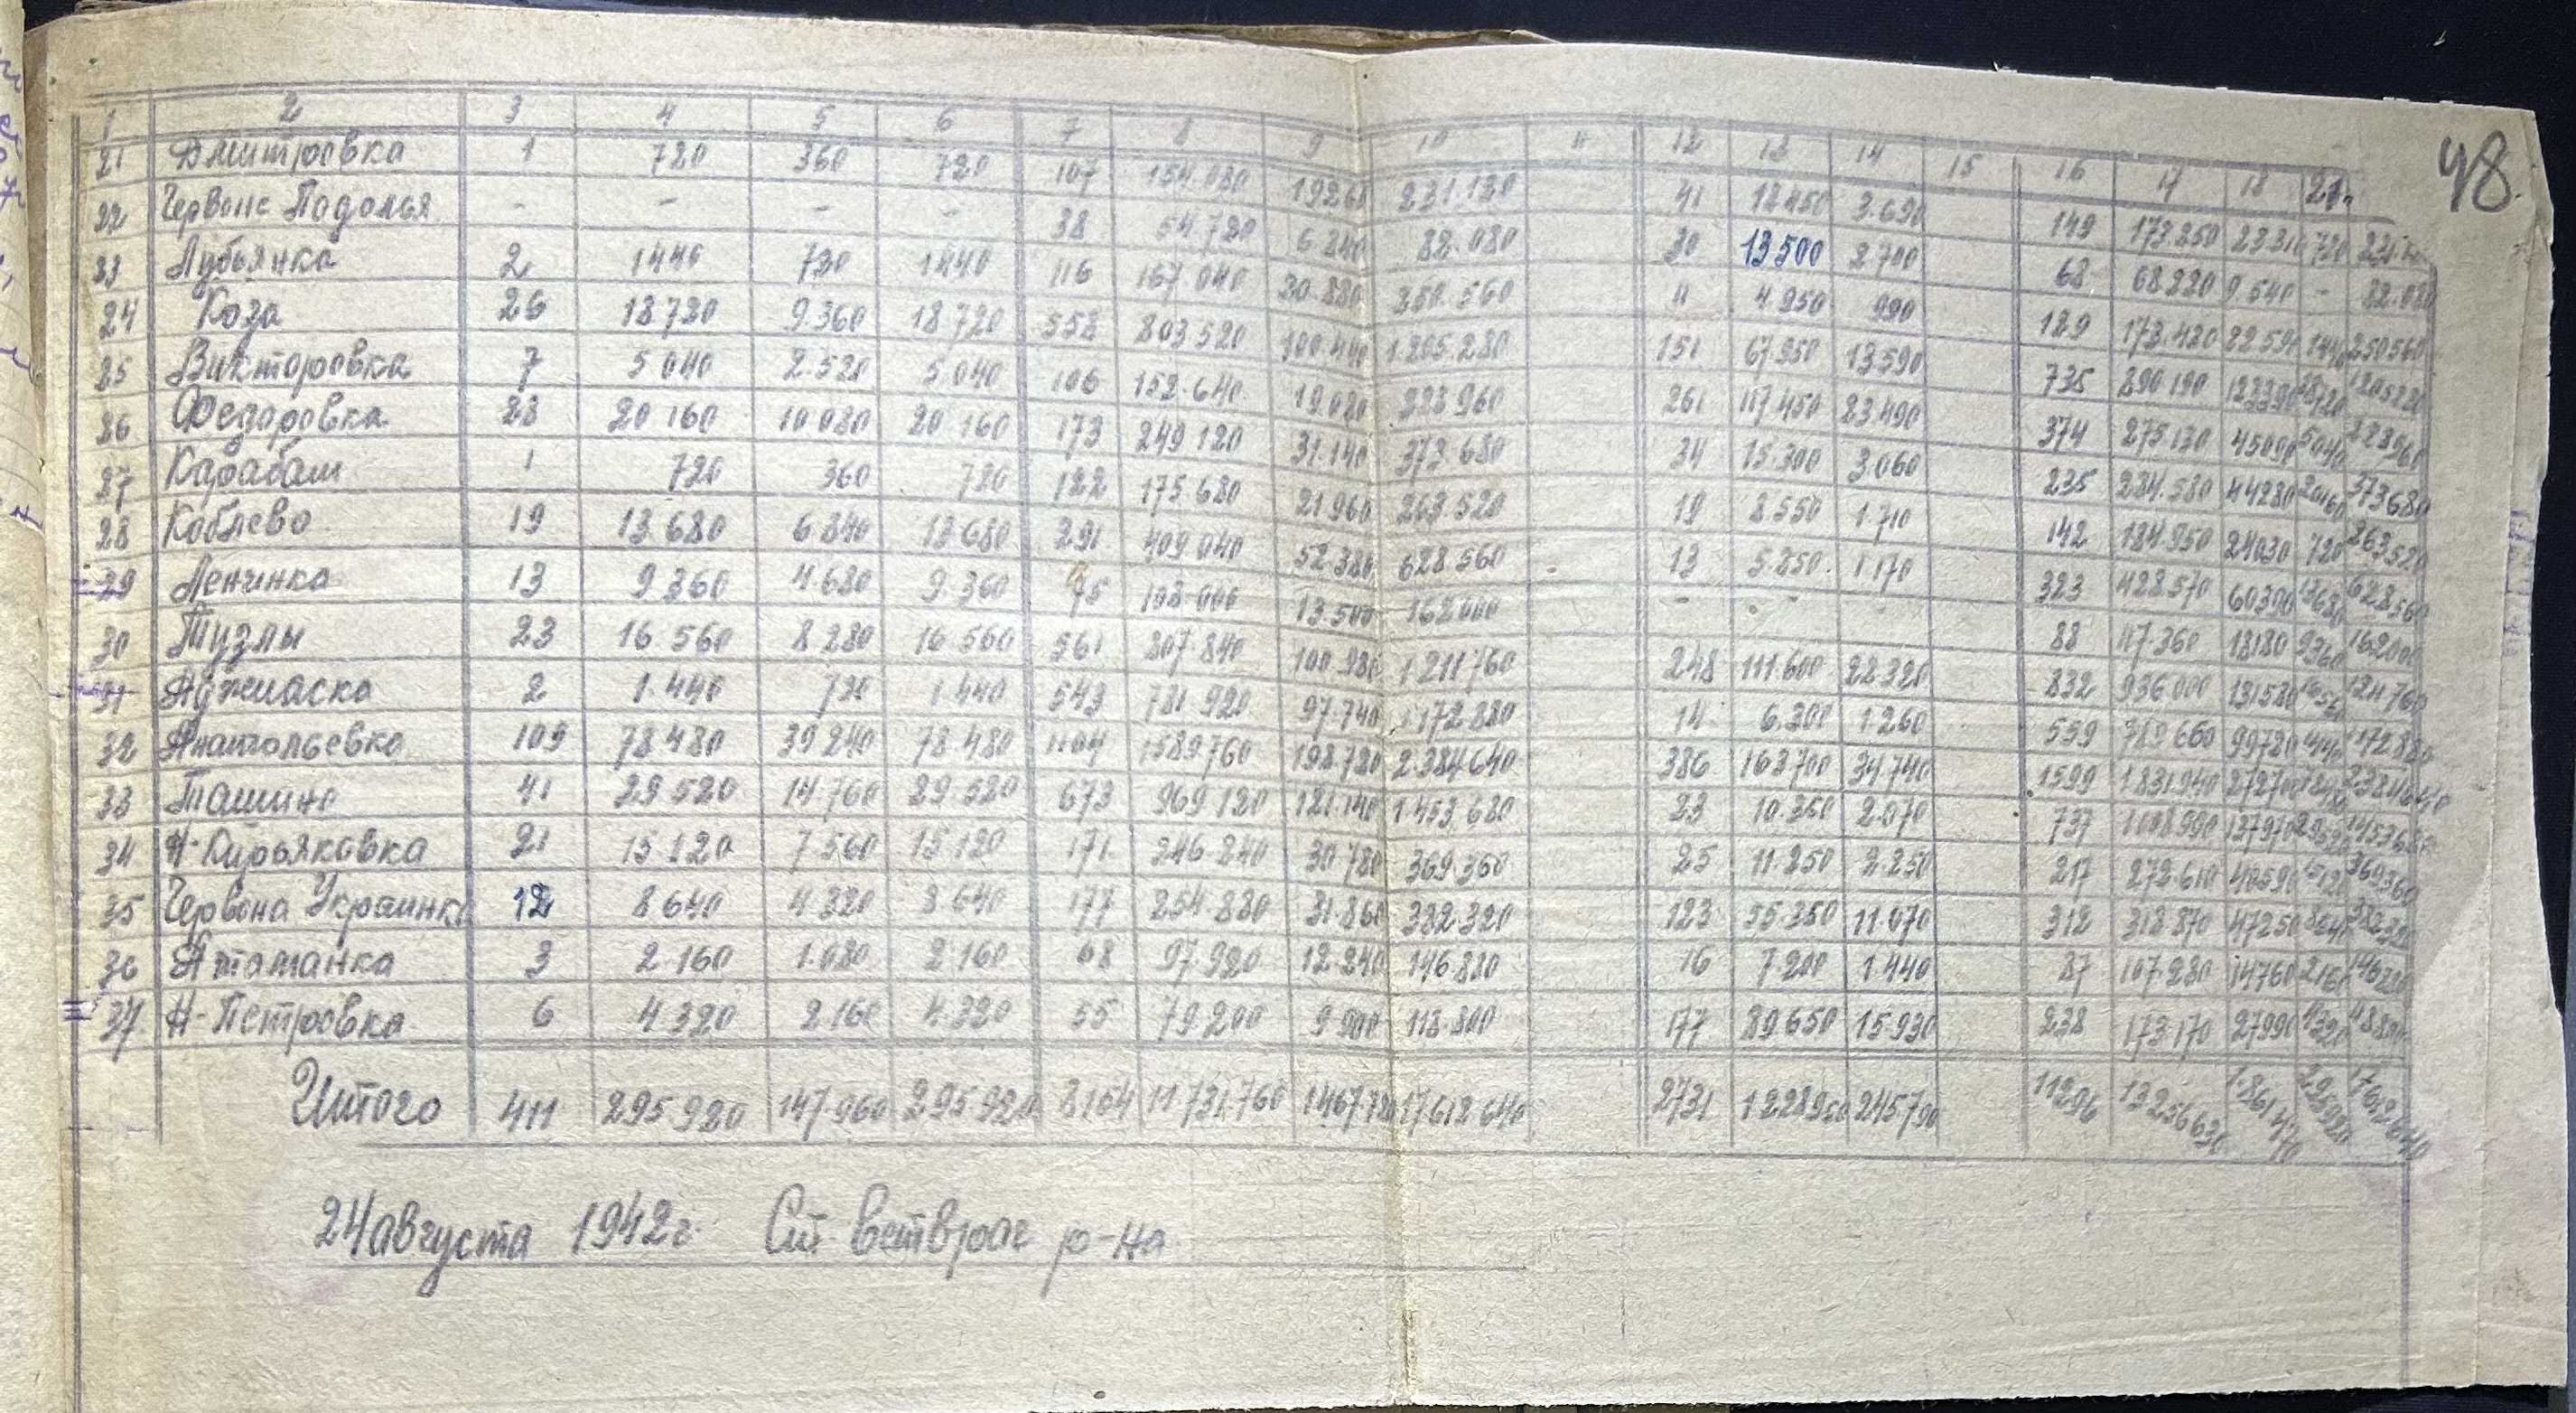 48.
1 2 3 4 5 6 7 8 9 10 11 12 13 14 15 16 17 18
21 Дмитровка 1 720 360 720 107 154.080 19260 231.120 41 18450 3.690 149 173250 23310 720
22 Червоне Подолья - - - - 38 54720 6840 82.080 30 13500 2700 68 68220 9540 - 82.080
23 Лубьянка 2 1440 720 1440 116 167.040 20.880 250.560 11 4.950 990 129 173.420 22590 1440 250560
24 Коза 26 18720 9360 18720 558 803520 100.440 1.205.280 151 67950 13590 735 890190 123390 18720
25 Викторовка 7 5040 2.520 5.040 106 152.640 19080 228960 261 117.450 23490 374 275.130 45090 5040 228960
26 Федоровка 28 20160 10080 20160 173 249120 31.140 373.680 34 15.300 3.060 235 284.580 44280 20160 373680
27 Карабаш 1 720 360 720 122 175680 21960 263.520 19 8550 1710 142 184.950 24030 720 263520
28 Коблево 19 13680 6840 13680 291 409040 52.380 628560 13 5.850. 1170 323 428570 60390 13680 628560
29 Ленинка 13 9360 4.680 9.360 75 108.000 13500 162000 - - - 88 117.360 18180 9360 162000
30 Тузлы 23 16560 8280 16560 561 807.840 100.980 1211760 248 111.600 22320 832 936000 131580 16560 1211760
31 Аджиаска 2 1.440 720 1.440 543 781920 97.740 1172.880 14 6.300 1.260 559 789660 99720 1440 1172880
32 Анатольевка 109 78480 39240 78.480 1104 1589760 198.720 2.384640 386 163700 34740 1599 1831940 272700 78480 2384640
33 Ташино 41 29520 14760 29520 673 969120 121.140 1453680 23 10.350 2.070 737 1008990 137970 29520 1453680
34 Н-Кирьяковка 21 15120 7560 15120 171 246240 30780 369360 25 11.250 2.250 217 272.610 40590 15120 369360
35 Червона Украинка 12 8640 4320 8640 177 254.880 31.860 382320 123 55.350 11.070 312 318870 47250 8640 382320
36 Атаманка 3 2.160 1.080 2160 68 97.920 12.240 146.880 16 7200 1.440 87 107.280 14760 2160 146880
37. Н-Петровка 6 4320 2160 4.320 55 79.200 9900 118.800 177 89650 15930 238 173.170 27990 4320
Итого 411 295920 147960 295920 8154 11731.760 1467720 17612640 2731 1228950 245790 11296 13256630 1.861470 295920 17612640
24 августа 1942 г. Ст. ветврач р-на